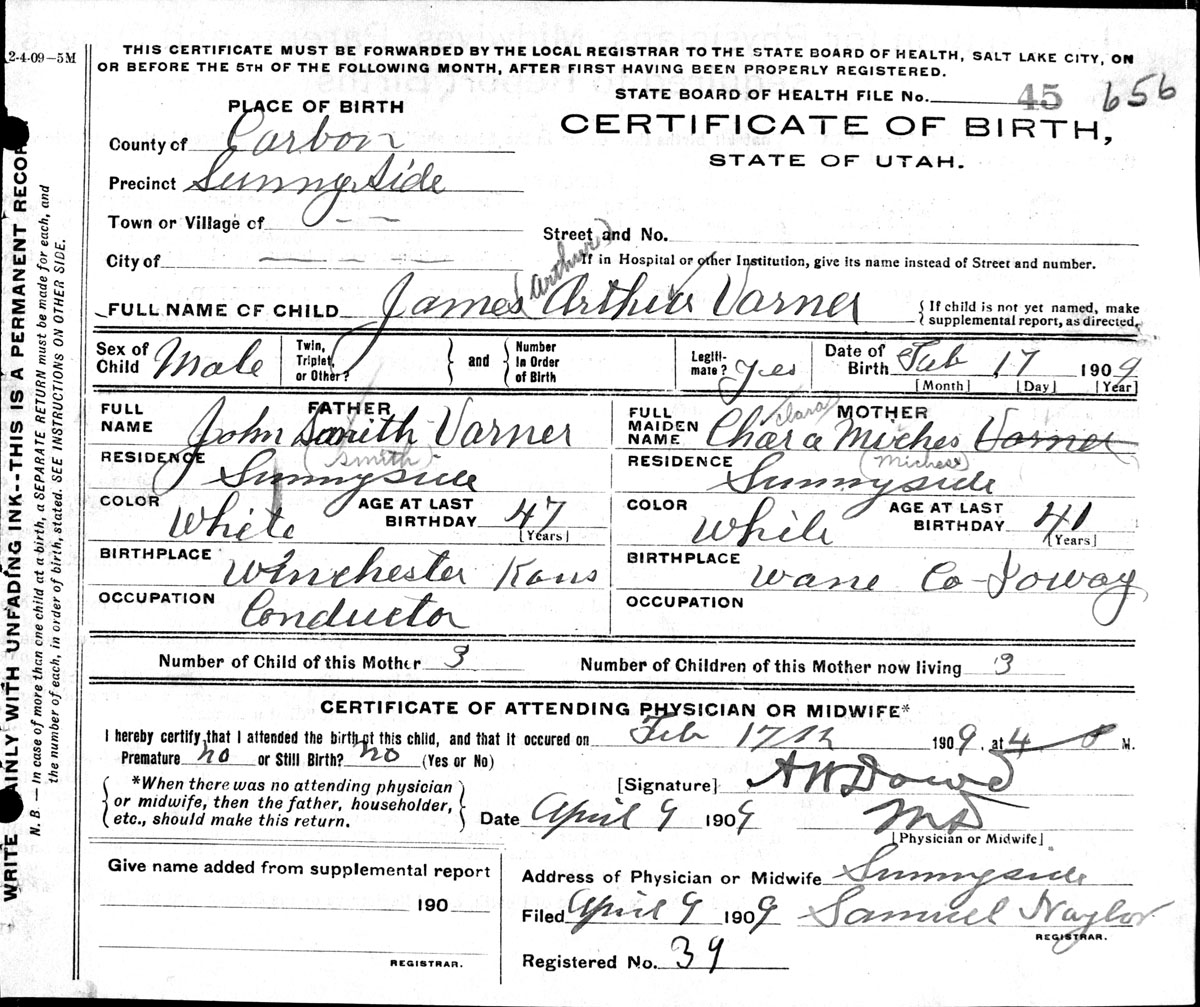 2-4-09—5M
THIS CERTIFICATE MUST BE FORWARDED BY THE LOCAL REGISTRAR TO THE STATE BOARD OF HEALTH, SALT LAKE CITY, ON
OR BEFORE THE 5TH OF THE FOLLOWING MONTH, AFTER FIRST HAVING BEEN PROPERLY REGISTERED.
STATE BOARD OF HEALTH FILE No. 45 656
PLACE OF BIRTH
CERTIFICATE OF BIRTH,
STATE OF UTAH.
County of Carbon
Precinct Sunny Side
Town or Village of — —
Street and No.
City of — — — —
If in Hospital or other Institution, give its name instead of Street and number.
(Arthur)
FULL NAME OF CHILD James Arthur Varner
{ If child is not yet named, make
supplemental report, as directed.
Sex of Child Male
Twin, Triplet, or Other?
and
Number in Order of Birth
Legiti-mate? Yes
Date of Birth Feb 17 1909
[Month] [Day] [Year]
FATHER
FULL NAME John Smith Varner
(Smith)
RESIDENCE Sunnyside
COLOR White
AGE AT LAST BIRTHDAY 47
[Years]
BIRTHPLACE Winchester Kans
OCCUPATION Conductor
MOTHER
Clara
FULL MAIDEN NAME Chara Miches Varner
(Miches)
RESIDENCE Sunnyside
COLOR While
AGE AT LAST BIRTHDAY 41
[Years]
BIRTHPLACE Wane Co Ioway
OCCUPATION
Number of Child of this Mother 3
Number of Children of this Mother now living 3
CERTIFICATE OF ATTENDING PHYSICIAN OR MIDWIFE*
I hereby certify that I attended the birth of this child, and that it occured on Feb 17th 1909, at 4 M.
Premature no or Still Birth? no (Yes or No)
*When there was no attending physician
or midwife, then the father, householder,
etc., should make this return.
[Signature] A W Dowd
Date April 9 1909 MD
[Physician or Midwife]
Give name added from supplemental report
190
REGISTRAR.
Address of Physician or Midwife Sunnyside
Filed April 9 1909 Samuel Naylor
REGISTRAR.
Registered No. 39
WRITE AINLY WITH UNFADING INK--THIS IS A PERMANENT RECOR
N. B. — In case of more than one child at a birth, a SEPARATE RETURN must be made for each, and
the number of each, in order of birth, stated. SEE INSTRUCTIONS ON OTHER SIDE.